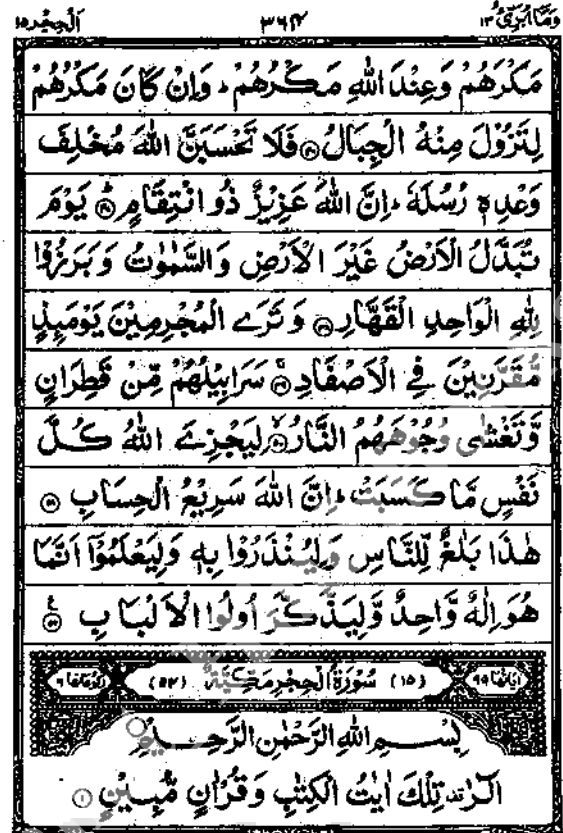 وَمَآ اُبَرِّئُ ١٣ ٣٦٤ اَلْحِجْر ١٥
مَكْرَهُمْ وَعِنْدَ اللّٰهِ مَكْرُهُمْ ؕ وَاِنْ كَانَ مَكْرُهُمْ
لِتَزُوْلَ مِنْهُ الْجِبَالُ ۝٤٦ فَلَا تَحْسَبَنَّ اللّٰهَ مُخْلِفَ
وَعْدِهٖ رُسُلَهٗ ؕ اِنَّ اللّٰهَ عَزِيْزٌ ذُو انْتِقَامٍ ؕ۝٤٧ يَوْمَ
تُبَدَّلُ الْاَرْضُ غَيْرَ الْاَرْضِ وَالسَّمٰوٰتُ وَبَرَزُوْا
لِلّٰهِ الْوَاحِدِ الْقَهَّارِ ۝٤٨ وَتَرَى الْمُجْرِمِيْنَ يَوْمَئِذٍ
مُّقَرَّنِيْنَ فِى الْاَصْفَادِ ۚ۝٤٩ سَرَابِيْلُهُمْ مِّنْ قَطِرَانٍ
وَّتَغْشٰى وُجُوْهَهُمُ النَّارُ ۙ۝٥٠ لِيَجْزِىَ اللّٰهُ كُلَّ
نَفْسٍ مَّا كَسَبَتْ ؕ اِنَّ اللّٰهَ سَرِيْعُ الْحِسَابِ ۝٥١
هٰذَا بَلٰغٌ لِّلنَّاسِ وَلِيُنْذَرُوْا بِهٖ وَلِيَعْلَمُوْٓا اَنَّمَا
هُوَ اِلٰهٌ وَّاحِدٌ وَّلِيَذَّكَّرَ اُولُوا الْاَلْبَابِ ۝٥٢ ع
اٰيَاتُهَا ٩٩ (١٥) سُوْرَةُ الْحِجْرِ مَكِّيَّةٌ (٥٤) رُكُوْعَاتُهَا ٦
بِسْمِ اللّٰهِ الرَّحْمٰنِ الرَّحِيْمِ
الٓرٰ ۫ تِلْكَ اٰيٰتُ الْكِتٰبِ وَقُرْاٰنٍ مُّبِيْنٍ ۝١